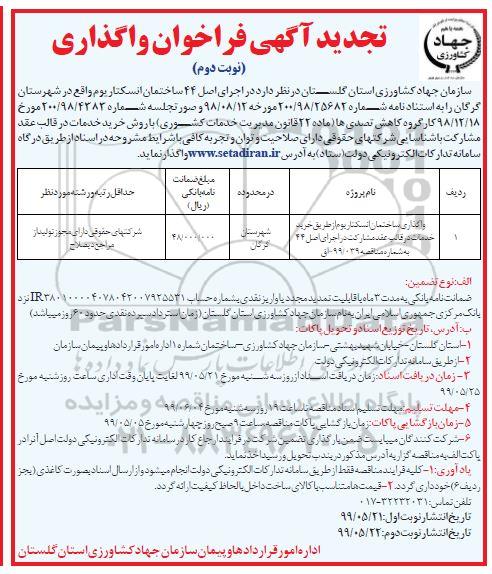 جهاد
کشاورزی
تجدید آگهی فراخوان واگذاری
(نوبت دوم)
سازمان جهاد کشاورزی استان گلستان در نظر دارد در اجرای اصل ۴۴ ساختمان انسکتاریوم واقع در شهرستان
گرگان را به استناد نامه شماره ۲۰۰/۹۸/۲۵۶۸۲ مورخه ۹۸/۰۸/۱۲ و صورتجلسه شماره ۲۰۰/۹۸/۴۲۸۲ مورخ
۹۸/۱۲/۱۸ کارگروه کاهش تصدی ها (ماده ۲۲ قانون مدیریت خدمات کشوری) با روش خرید خدمات در قالب عقد
مشارکت با شناسایی شرکتهای حقوقی دارای صلاحیت و توان و تجربه کافی با شرایط مشروحه در اسناد از طریق درگاه
سامانه تدارکات الکترونیکی دولت (ستاد) به آدرس www.setadiran.ir واگذار نماید.
ردیف
نام پروژه
در محدوده
مبلغ ضمانت نامه بانکی (ریال)
حداقل رتبه و رشته مورد نظر
۱
واگذاری ساختمان انسکتاریوم از طریق خرید
خدمات در قالب عقد مشارکت در اجرای اصل ۴۴
به شماره مناقصه ۹۹/۰۳۹-الق
شهرستان گرگان
۴۸/۰۰۰/۰۰۰
شرکتهای حقوقی دارای مجوز تولید از
مراجع ذیصلاح
الف: نوع تضمین:
ضمانت نامه بانکی به مدت ۳ ماه با قابلیت تمدید مجدد یا واریز نقدی بشماره حساب IR۳۸۰۱۰۰۰۰۴۰۷۸۰۴۲۰۰۷۹۲۵۵۳۱ نزد
بانک مرکزی جمهوری اسلامی ایران به نام سازمان جهاد کشاورزی استان گلستان (زمان استرداد سپرده نقدی حدود ۶۰ روز میباشد)
ب: آدرس، تاریخ توزیع اسناد و تحویل پاکات:
۱-استان گلستان-خیابان شهید بهشتی-سازمان جهاد کشاورزی-ساختمان شماره ۱ اداره امور قراردادها و پیمان سازمان
۲-از طریق سامانه تدارکات الکترونیکی دولت
۳-زمان دریافت اسناد: زمان دریافت اسناد از روز سه شنبه مورخ ۹۹/۰۵/۲۱ لغایت پایان وقت اداری ساعت روز شنبه مورخ
۹۹/۰۵/۲۵
۴-مهلت تسلیم: مهلت تسلیم اسناد مناقصه تا ساعت ۱۹ روز سه شنبه مورخ ۹۹/۰۶/۰۴
۵-زمان بازگشایی پاکات: زمان بازگشایی پاکات مناقصه ساعت ۹ صبح روز چهارشنبه مورخ ۹۹/۰۵/۰۵
۶-شرکت کنندگان میبایست ضمن بارگذاری تضمین شرکت در فرایند ارجاع کار در سامانه تدارکات الکترونیکی دولت اصل آنرا در
پاکت الف به مناقصه گزار به آدرس مذکور در بند ب تحویل و رسید اخذ نماید.
یادآوری: ۱-کلیه فرایند مناقصه فقط از طریق سامانه تدارکات الکترونیکی دولت انجام میشود و از ارسال اسناد بصورت کاغذی (بجز
ردیف ۶) خودداری گردد. ۲-قیمت ها متناسب با کالای ساخت داخل با لحاظ کیفیت ارائه گردد.
تلفن تماس: ۳۲۲۳۲۰۳۱-۰۱۷
تاریخ انتشار نوبت اول: ۹۹/۰۵/۲۱
تاریخ انتشار نوبت دوم: ۹۹/۰۵/۲۲
اداره امور قراردادها و پیمان سازمان جهاد کشاورزی استان گلستان